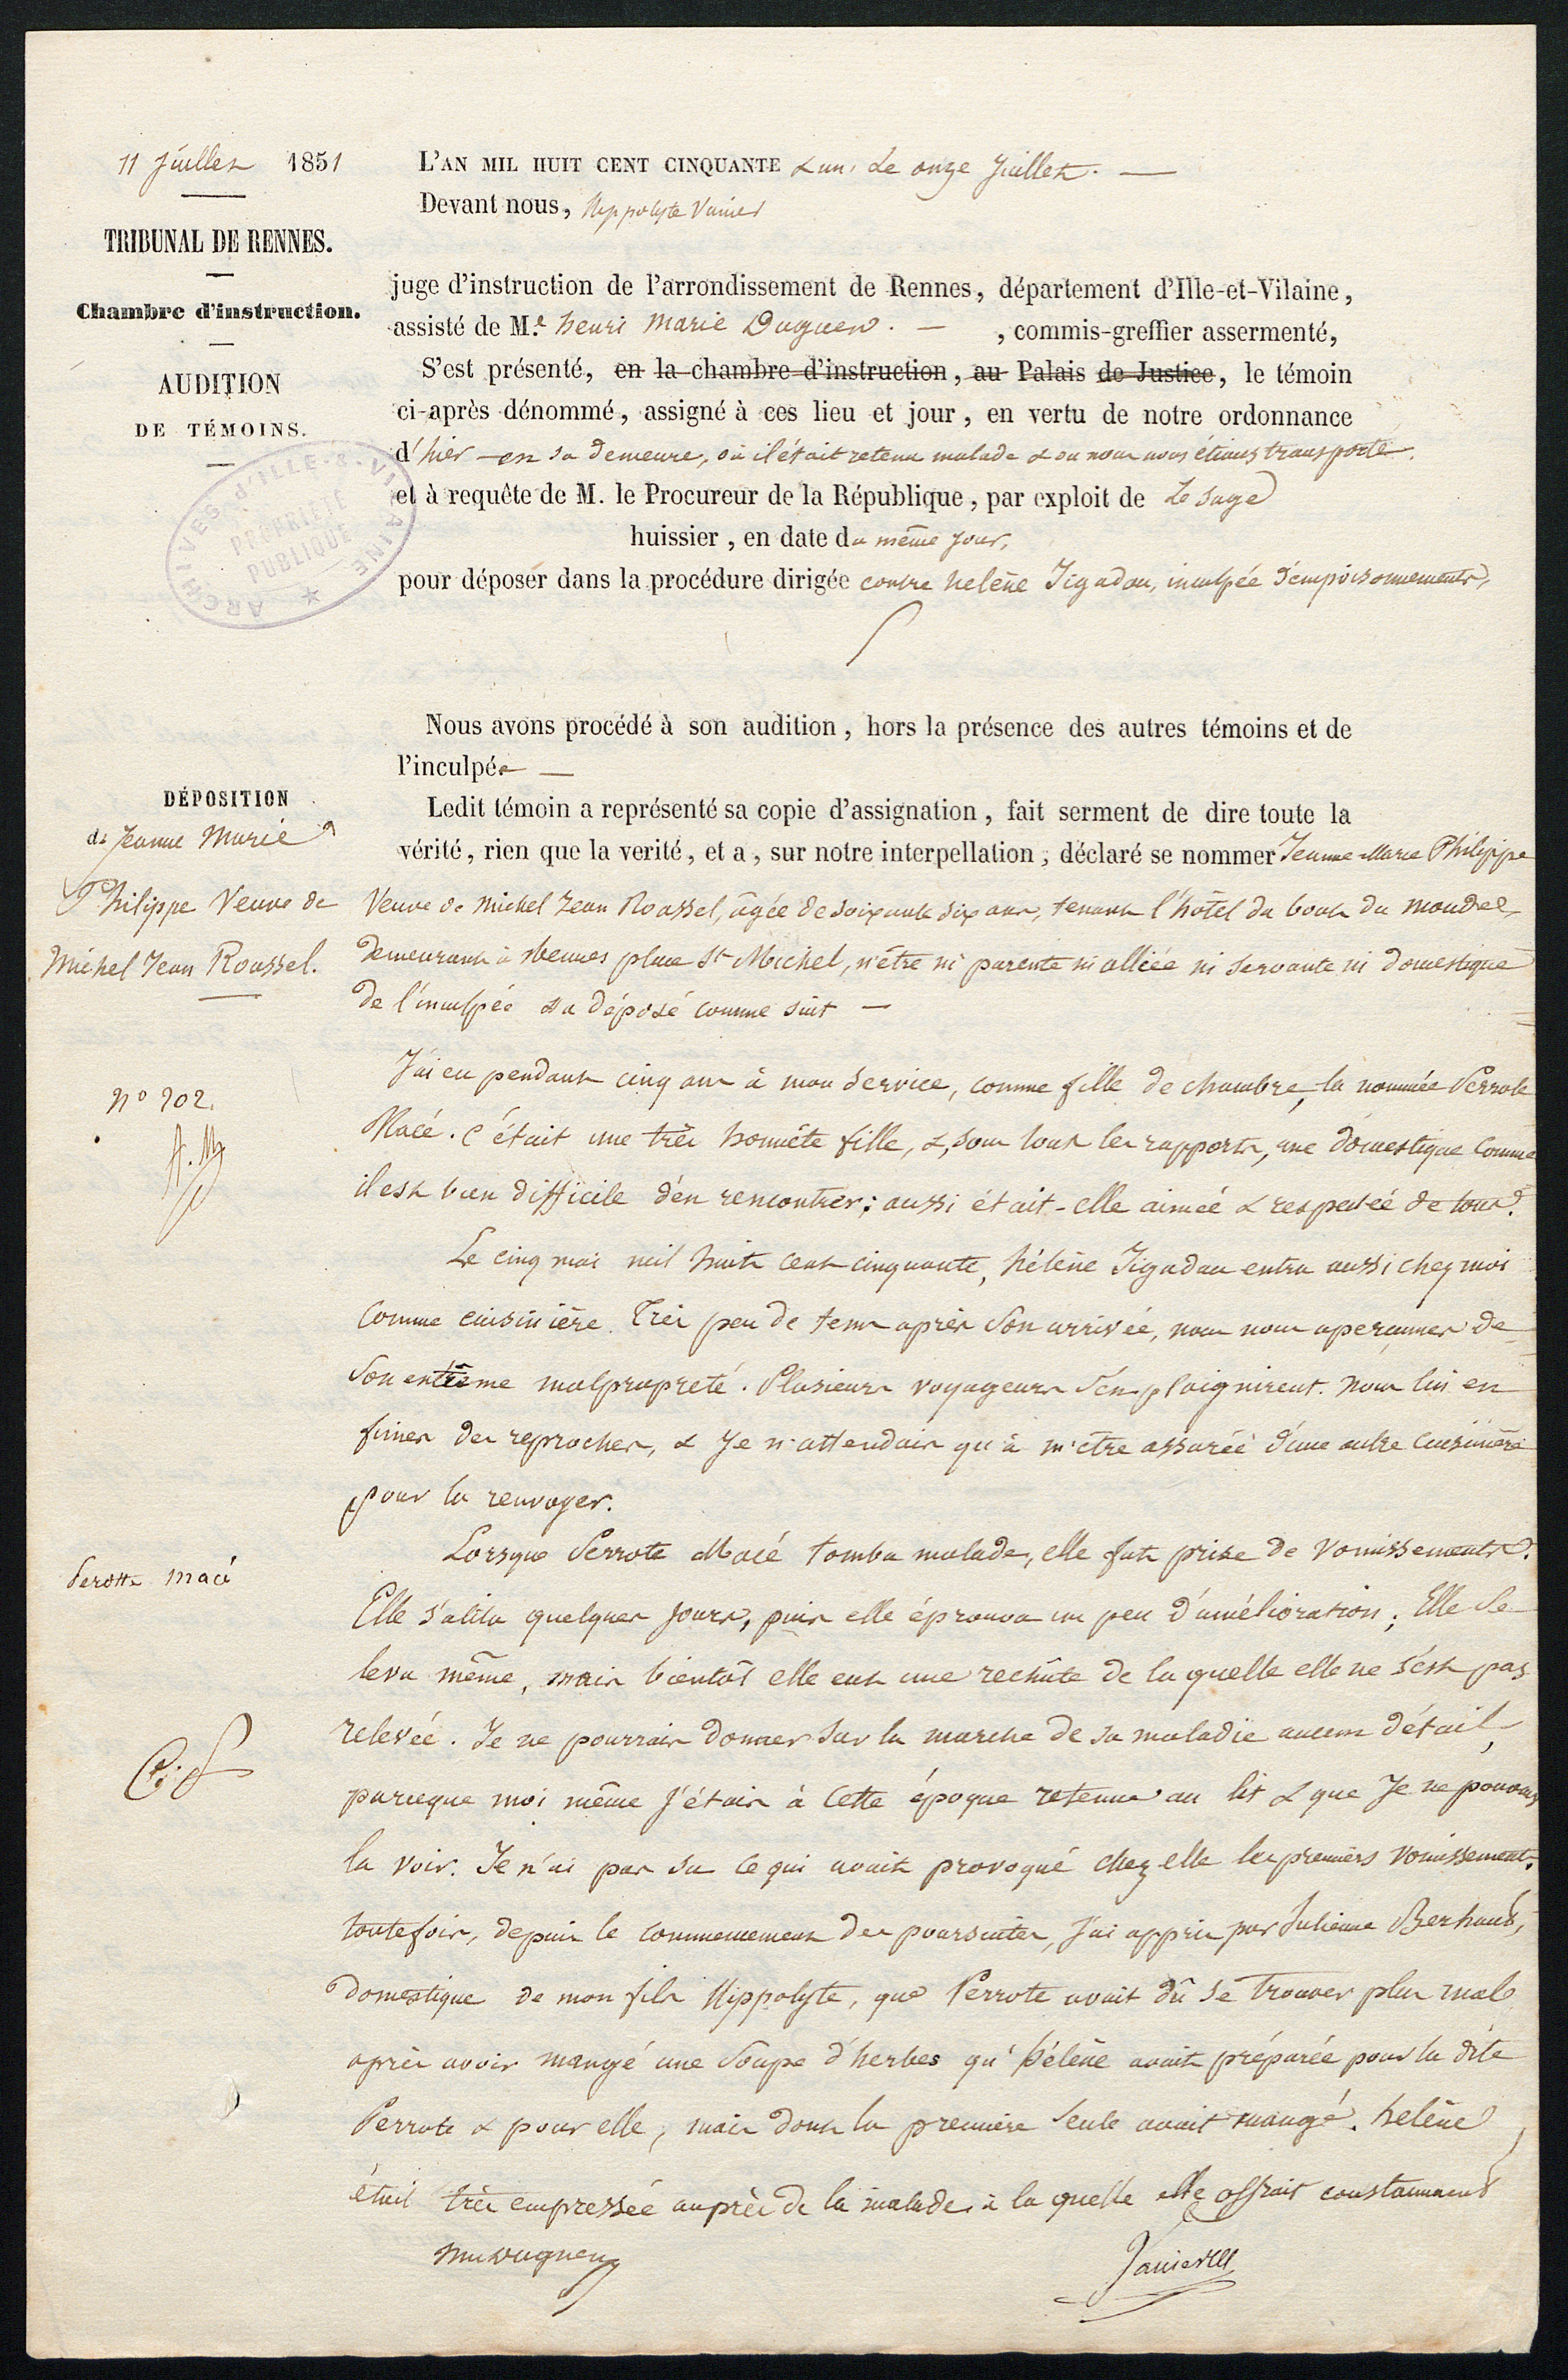 11 Juillet 1851
TRIBUNAL DE RENNES.
Chambre d'instruction.
AUDITION
DE TÉMOINS.
ARCHIVES D'ILLE-&-VILAINE
PROPRIÉTÉ
PUBLIQUE
L'AN MIL HUIT CENT CINQUANTE & un, Le onze Juillet. —
Devant nous, Hyppolyte Vanier
juge d'instruction de l'arrondissement de Rennes, département d'Ille-et-Vilaine,
assisté de M.e henri Marie Duguen. — , commis-greffier assermenté,
S'est présenté, en la chambre d'instruction, au Palais de Justice, le témoin
ci-après dénommé, assigné à ces lieu et jour, en vertu de notre ordonnance
d'hier — en sa demeure, où il était retenu malade & ou nous nous étions transporté.
et à requête de M. le Procureur de la République, par exploit de Le sage
huissier, en date du même jour,
pour déposer dans la procédure dirigée contre helène Jégadou, inculpée d'empoisonnements,
Nous avons procédé à son audition, hors la présence des autres témoins et de
l'inculpée —
DÉPOSITION
de Jeanne Marie
Philippe Veuve de
Michel Jean Roussel.
Ledit témoin a représenté sa copie d'assignation, fait serment de dire toute la
vérité, rien que la verité, et a, sur notre interpellation, déclaré se nommer Jeanne-Marie Philippe
Veuve de Michel Jean Roussel, âgée de soixante six ans, tenant l'hôtel du bout du monde,
demeurant à Rennes place St Michel, n'être ni parente ni alliée ni servante ni domestique
de l'inculpée & a déposé comme suit —
N° 202.
J'ai eu pendant cinq ans à mon service, comme fille de chambre, la nommée Perrote
Macé. C'était une très honnête fille, &, sous tous les rapports, une domestique comme
il est bien difficile d'en rencontrer; aussi était-elle aimée & respectée de tous.
Le cinq mai mil huit cent cinquante, hélène Jégadou entra aussi chez moi
comme cuisinière. Très peu de tems après son arrivée, nous nous aperçumes de
son extrême malpropreté. Plusieurs voyageurs s'en plaignirent. nous lui en
fimes des reproches, & Je n'attendais qu'à m'être assurée d'une autre cuisinière
pour la renvoyer.
Perotte Macé
Lorsque Perrote Macé tomba malade, elle fut prise de vomissements.
Elle s'alita quelques jours, puis elle éprouva un peu d'amélioration; Elle se
leva même, mais bientôt elle eut une rechûte de laquelle elle ne s'est pas
relevée. Je ne pourrais donner sur la marche de sa maladie aucun détail,
parceque moi même j'étais à cette époque retenue au lit & que Je ne pouvais
la voir. Je n'ai pas su ce qui avait provoqué chez elle les premiers vomissements.
toutefois, depuis le commencement des poursuites, J'ai appris par Julienne Berhault,
domestique de mon fils Hippolyte, que Perrote avait dû se trouver plus mal
après avoir mangé une soupe d'herbes qu'hélène avait préparée pour la dite
Perrote & pour elle, mais dont la première seule avait mangé. helène
était très empressée auprès de la malade, à la quelle elle offrait constamment
hmduguen
Vanier